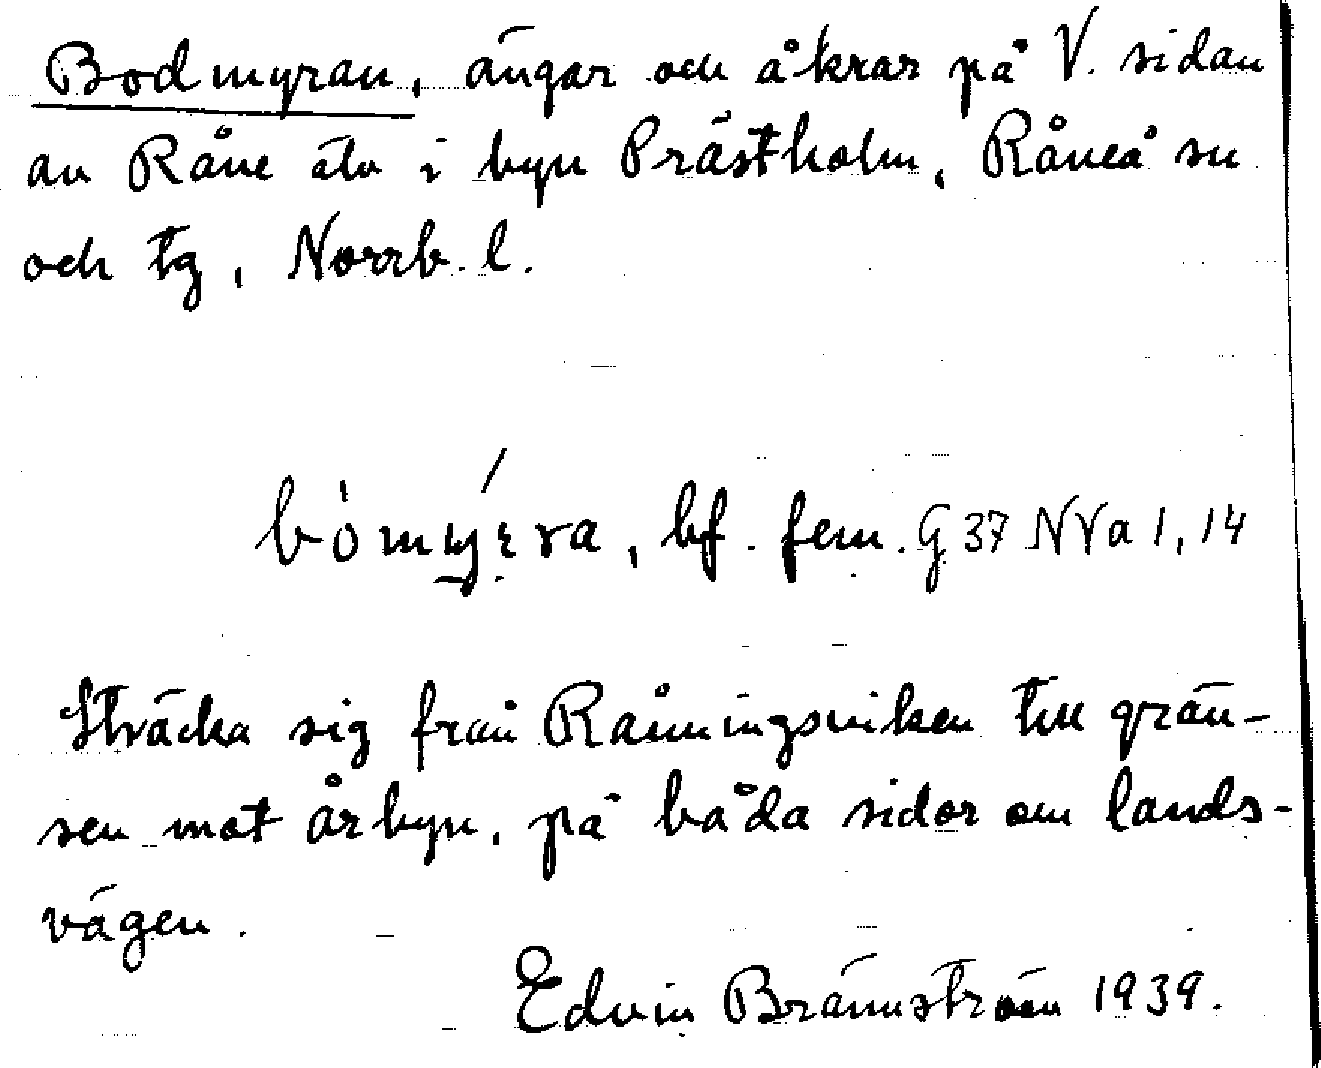 Bodmyran, ängar och åkrar på V. sidan
av Råne älv i byn Prästholm, Råneå sn
och tg, Norrb. l.
bf. fem. G 37 NVa 1, 14
Sträcka sig från Rånningsviken till grän-
sen mot Årbyn, på båda sidor om lands-
vägen.
Edvin Brännström 1939.